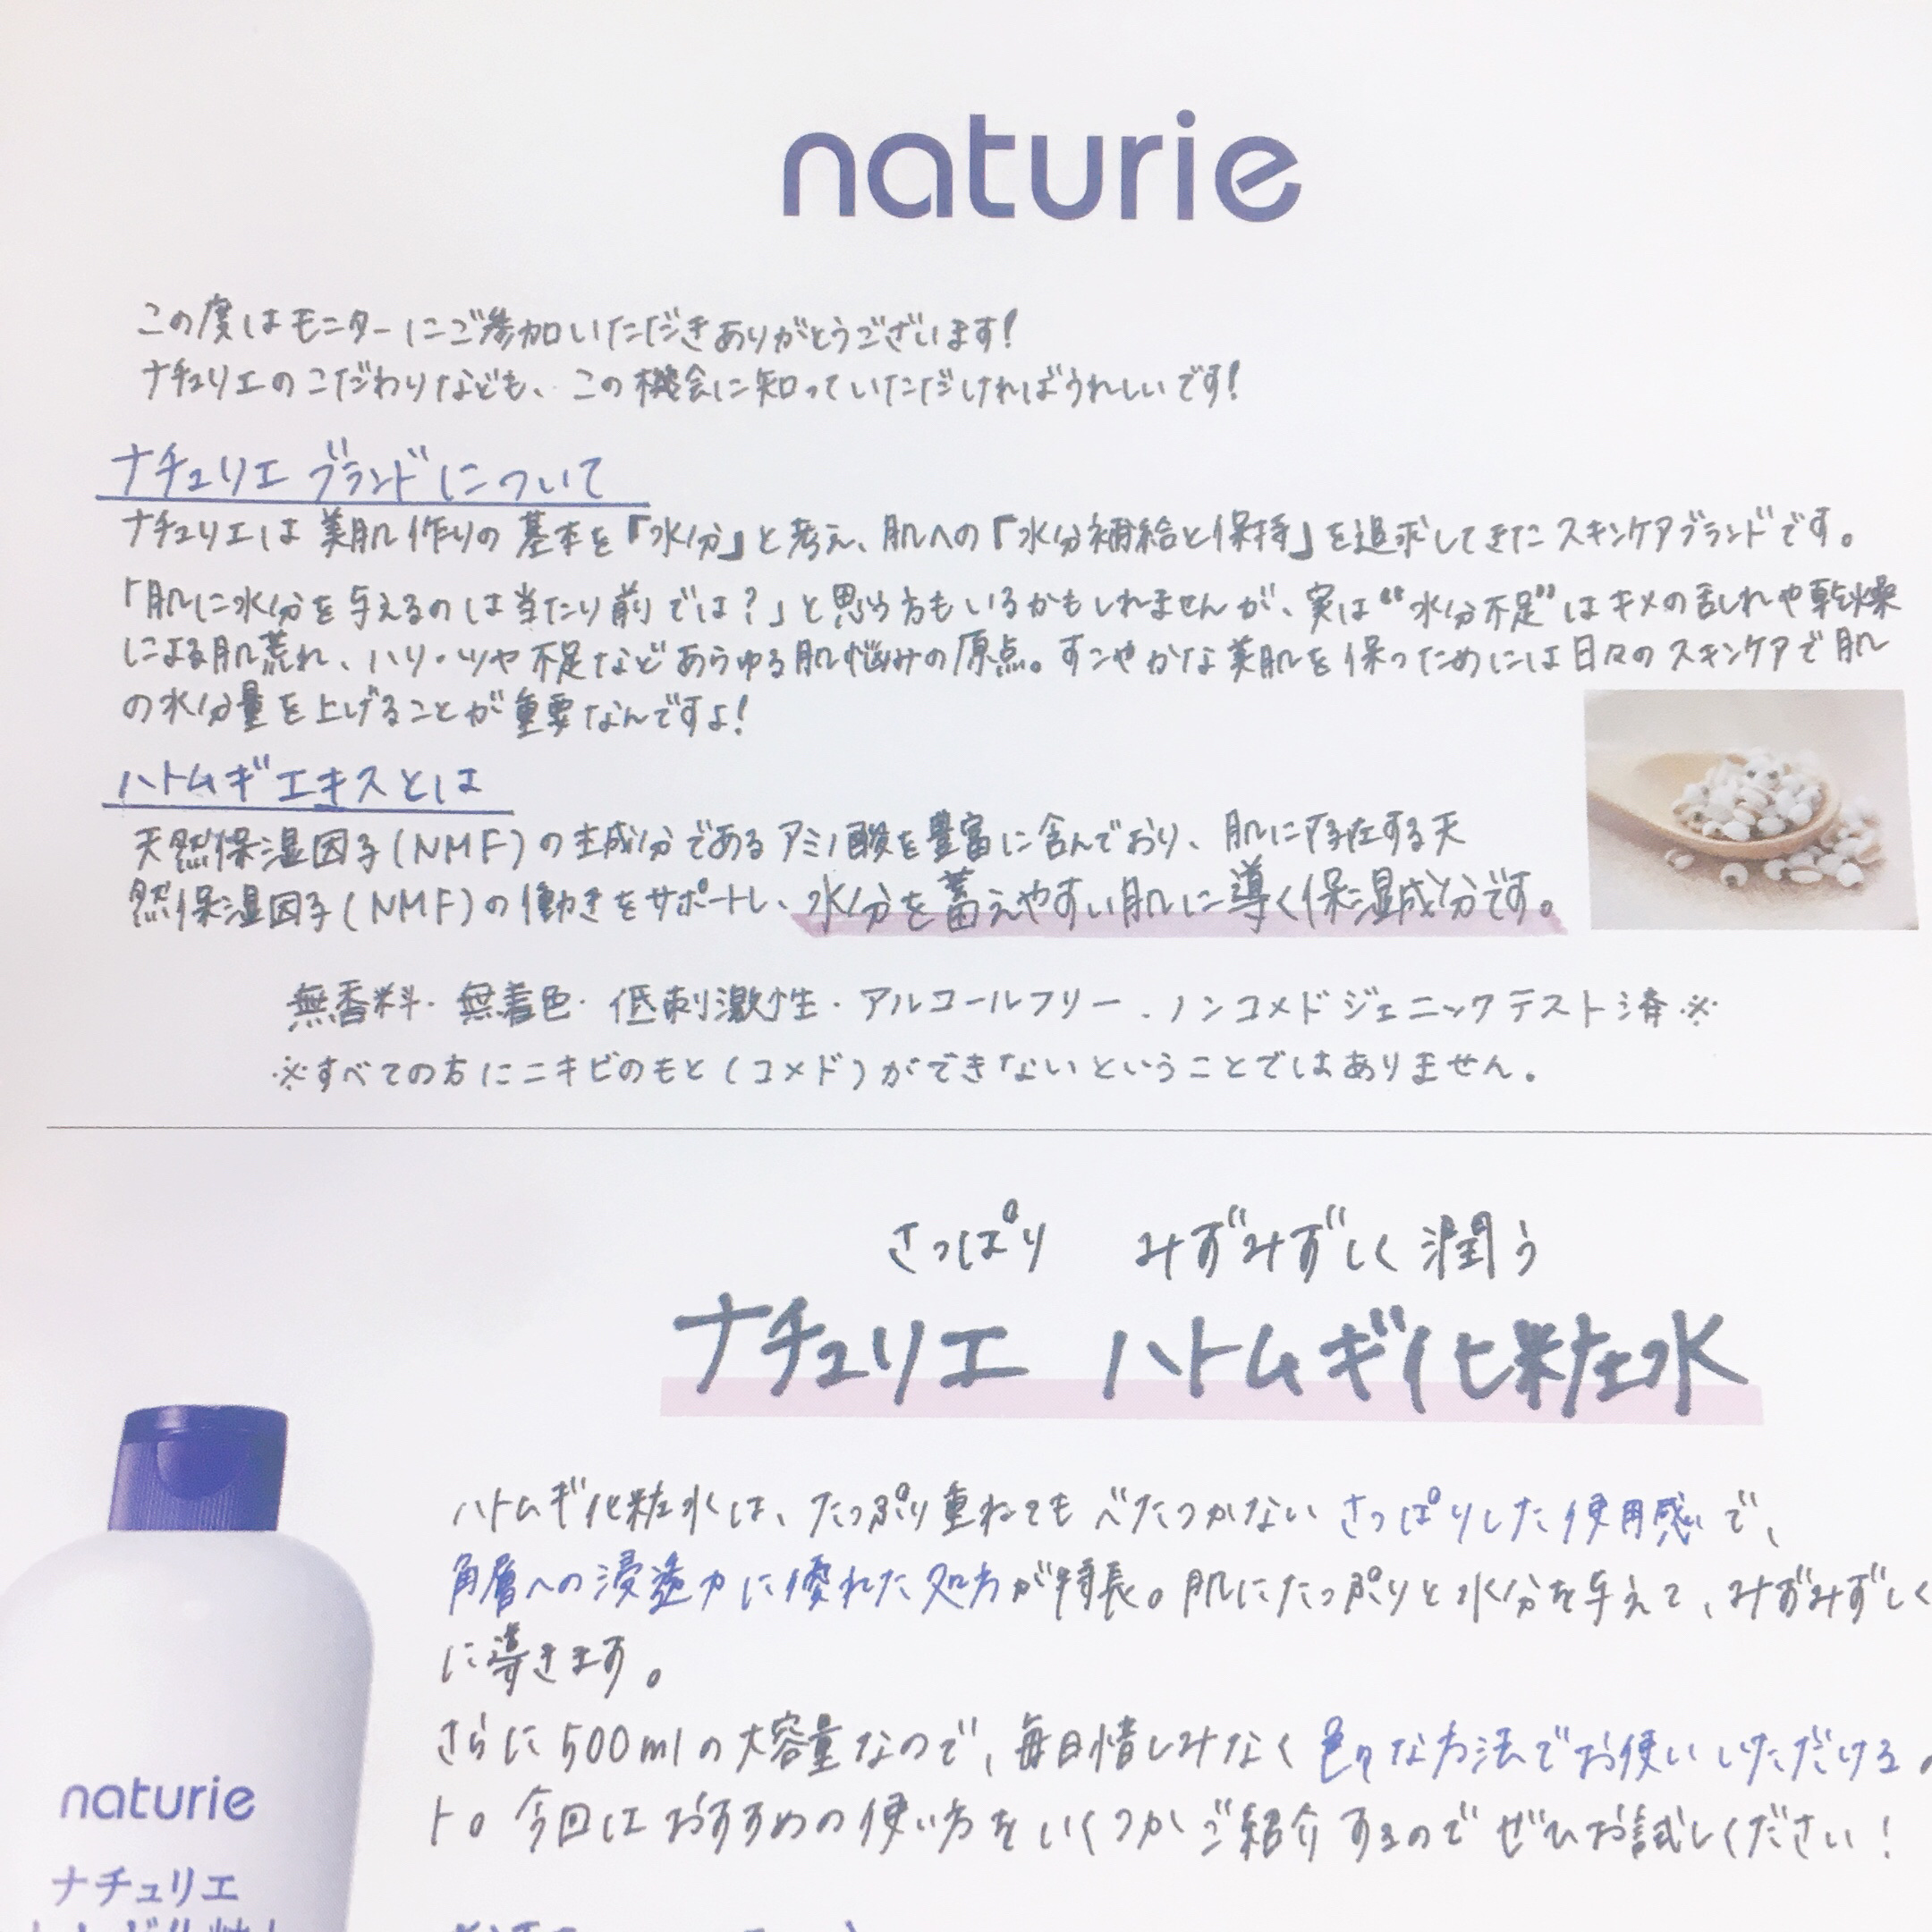 naturie
この度はモニターにご参加いただきありがとうございます!
ナチュリエのこだわりなども、この機会に知っていただければうれしいです!
ナチュリエ ブランドについて
ナチュリエは美肌作りの基本を「水分」と考え、肌への「水分補給と保持」を追求してきたスキンケアブランドです。
「肌に水分を与えるのは当たり前では?」と思う方もいるかもしれませんが、実は“水分不足”はキメの乱れや乾燥
による肌荒れ、ハリ・ツヤ不足などあらゆる肌悩みの原点。すこやかな美肌を保つためには日々のスキンケアで肌
の水分量を上げることが重要なんですよ!
ハトムギエキスとは
天然保湿因子(NMF)の主成分であるアミノ酸を豊富に含んでおり、肌に存在する天
然保湿因子(NMF)の働きをサポートし、水分を蓄えやすい肌に導く保湿成分です。
無香料・無着色・低刺激性・アルコールフリー・ノンコメドジェニックテスト済※
※すべての方にニキビのもと(コメド)ができないということではありません。
さっぱり みずみずしく潤う
ナチュリエ ハトムギ化粧水
ハトムギ化粧水は、たっぷり重ねてもべたつかないさっぱりした使用感で、
角層への浸透力に優れた処方が特長。肌にたっぷりと水分を与えて、みずみずしく
に導きます。
さらに500mlの大容量なので、毎日惜しみなく色々な方法でお使いいただける
ト。今回はおすすめの使い方をいくつかご紹介するのでぜひお試しください!
naturie
ナチュリエ